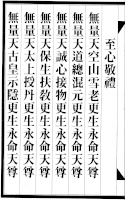 至心敬禮
無量天空山雪老更生永命天尊
無量天道總混元更生永命天尊
無量天誠心接物更生永命天尊
無量天保生扶教更生永命天尊
無量天太上授丹更生永命天尊
無量天古皇示隱更生永命天尊